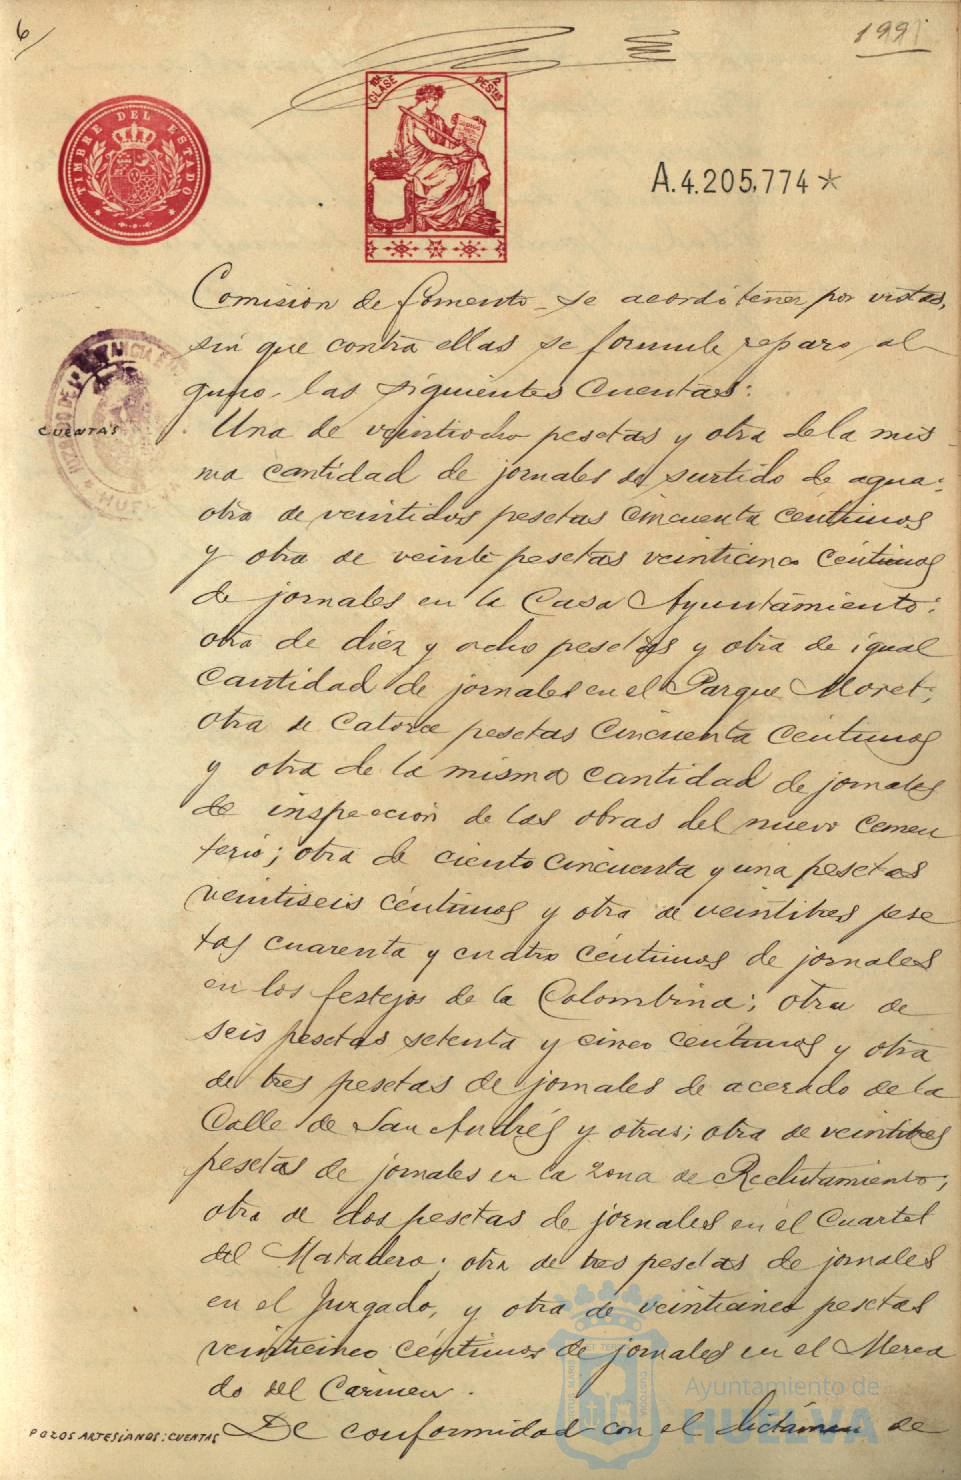 6
199
TIMBRE DEL ESTADO
10ª CLASE 2 PESTAS
A.4.205,774*
Comision de fomento se acordó tener por vistas,
sin que contra ellas se formule reparo al
guno, las siguientes cuentas:
CUENTAS
Una de veintiocho pesetas y otra de la mis
ma cantidad de jornales de surtido de agua;
otra de veintidos pesetas cincuenta céntimos
y otra de veinte pesetas veinticinco céntimos
de jornales en la Casa Ayuntamiento;
otra de diez y ocho pesetas y otra de igual
cantidad de jornales en el Parque Moret;
otra de catorce pesetas cincuenta céntimos
y otra de la misma cantidad de jornales
de inspeccion de las obras del nuevo cemen
terio; otra de ciento cincuenta y una pesetas
veintiseis céntimos y otra de veintitres pese
tas cuarenta y cuatro céntimos de jornales
en los festejos de la Colombina; otra de
seis pesetas setenta y cinco céntimos y otra
de tres pesetas de jornales de acerado de la
Calle de San Andrés y otras; otra de veintitres
pesetas de jornales en la Zona de Reclutamiento;
otra de dos pesetas de jornales en el Cuartel
del Matadero; otra de tres pesetas de jornales
en el Juzgado, y otra de veinticinco pesetas
veinticinco céntimos de jornales en el Merca
do del Carmen.
POZOS ARTESIANOS: CUENTAS
De conformidad con el dictámen de
Ayuntamiento de
HUELVA